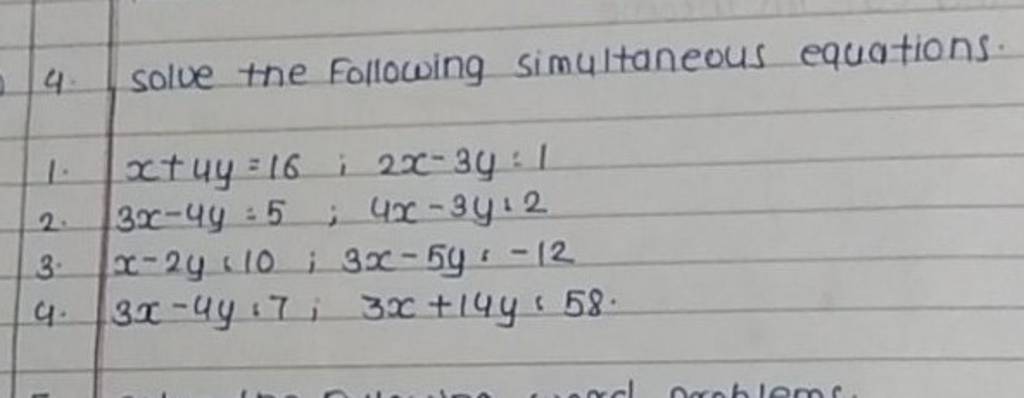 4. solve the Following simultaneous equations.
1. x+4y=16 ; 2x-3y=1
2. 3x-4y=5 ; 4x-3y=2
3. x-2y=10 ; 3x-5y=-12
4. 3x-4y=7 ; 3x+14y=58.
problems.